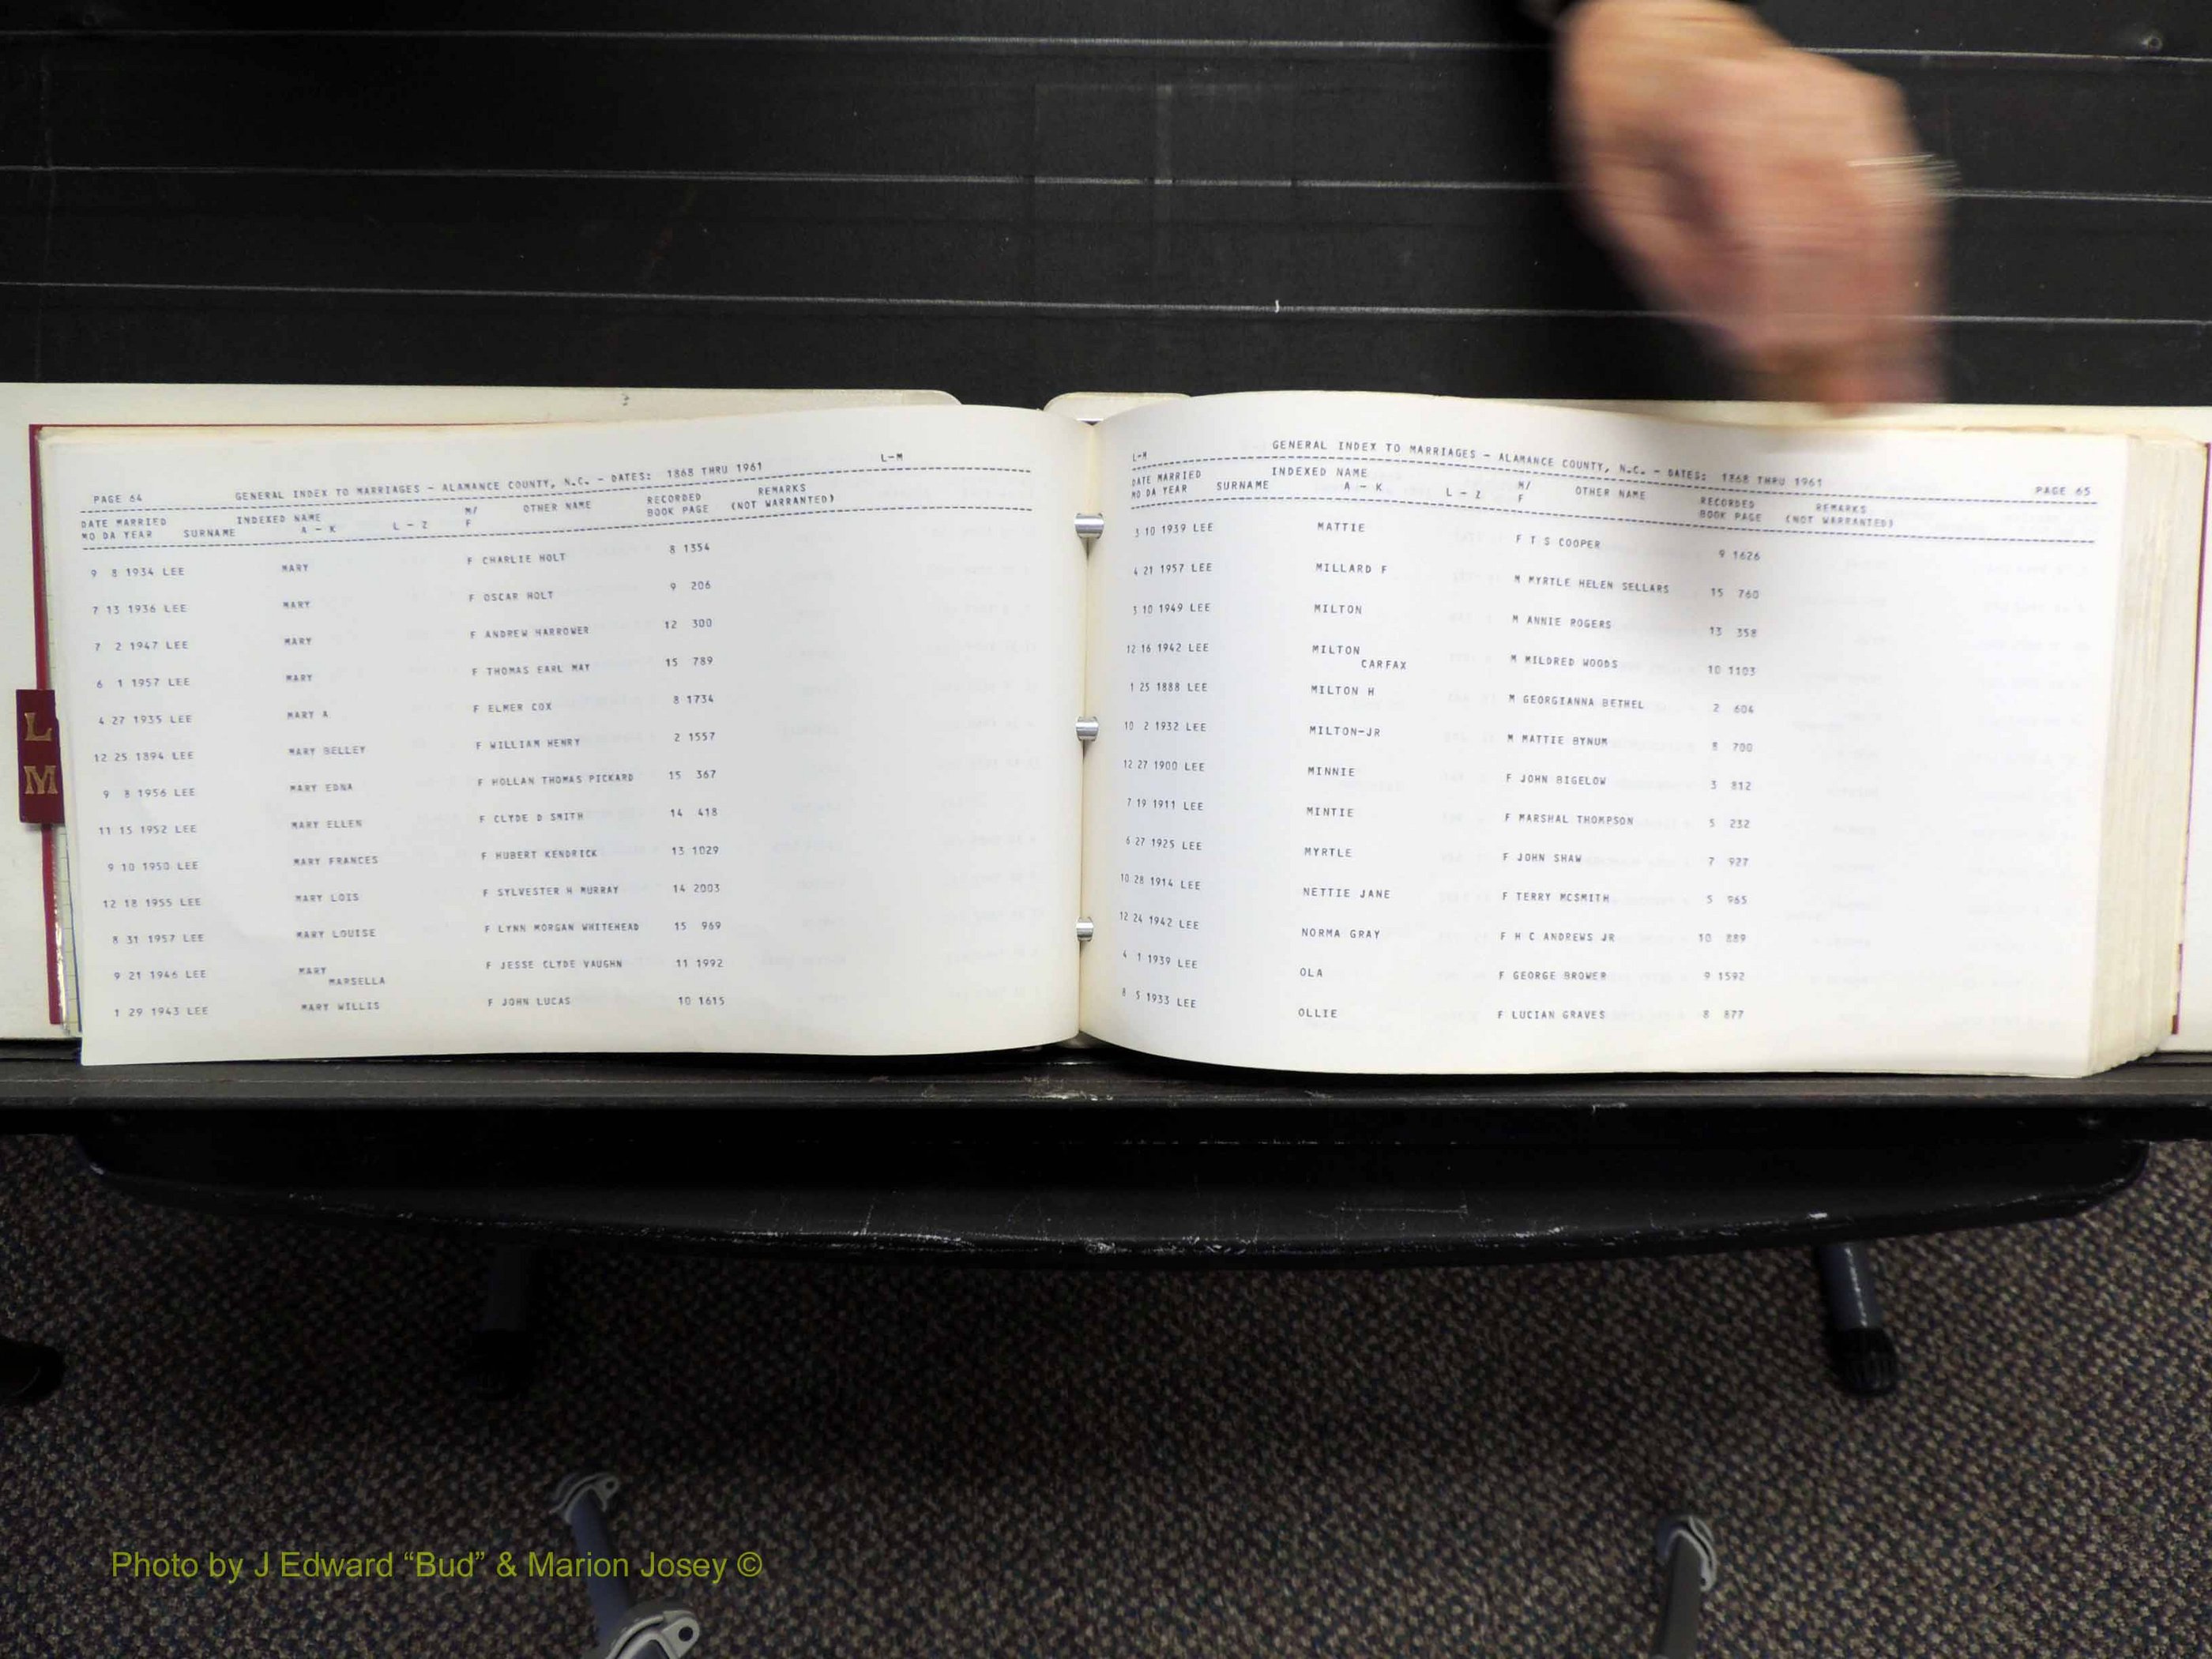 L
M
L-M
PAGE 64 GENERAL INDEX TO MARRIAGES - ALAMANCE COUNTY, N.C. - DATES: 1868 THRU 1961
DATE MARRIED INDEXED NAME M/ OTHER NAME RECORDED REMARKS
MO DA YEAR SURNAME A - K L - Z F BOOK PAGE (NOT WARRANTED)
9 8 1934 LEE MARY F CHARLIE HOLT 8 1354
7 13 1936 LEE MARY F OSCAR HOLT 9 206
7 2 1947 LEE MARY F ANDREW HARROWER 12 300
6 1 1957 LEE MARY F THOMAS EARL MAY 15 789
4 27 1935 LEE MARY A F ELMER COX 8 1734
12 25 1894 LEE MARY BELLEY F WILLIAM HENRY 2 1557
9 8 1956 LEE MARY EDNA F HOLLAN THOMAS PICKARD 15 367
11 15 1952 LEE MARY ELLEN F CLYDE D SMITH 14 418
9 10 1950 LEE MARY FRANCES F HUBERT KENDRICK 13 1029
12 18 1955 LEE MARY LOIS F SYLVESTER H MURRAY 14 2003
8 31 1957 LEE MARY LOUISE F LYNN MORGAN WHITEHEAD 15 969
9 21 1946 LEE MARY F JESSE CLYDE VAUGHN 11 1992
MARSELLA
1 29 1943 LEE MARY WILLIS F JOHN LUCAS 10 1615
L-M GENERAL INDEX TO MARRIAGES - ALAMANCE COUNTY, N.C. - DATES: 1868 THRU 1961 PAGE 65
DATE MARRIED INDEXED NAME M/ OTHER NAME RECORDED REMARKS
MO DA YEAR SURNAME A - K L - Z F BOOK PAGE (NOT WARRANTED)
3 10 1939 LEE MATTIE F T S COOPER 9 1626
4 21 1957 LEE MILLARD F M MYRTLE HELEN SELLARS 15 760
3 10 1949 LEE MILTON M ANNIE ROGERS 13 358
12 16 1942 LEE MILTON M MILDRED WOODS 10 1103
CARFAX
1 25 1888 LEE MILTON H M GEORGIANNA BETHEL 2 604
10 2 1932 LEE MILTON-JR M MATTIE BYNUM 8 700
12 27 1900 LEE MINNIE F JOHN BIGELOW 3 812
7 19 1911 LEE MINTIE F MARSHAL THOMPSON 5 232
6 27 1925 LEE MYRTLE F JOHN SHAW 7 927
10 28 1914 LEE NETTIE JANE F TERRY MCSMITH 5 965
12 24 1942 LEE NORMA GRAY F H C ANDREWS JR 10 889
4 1 1939 LEE OLA F GEORGE BROWER 9 1592
8 5 1933 LEE OLLIE F LUCIAN GRAVES 8 877
Photo by J Edward “Bud” & Marion Josey ©